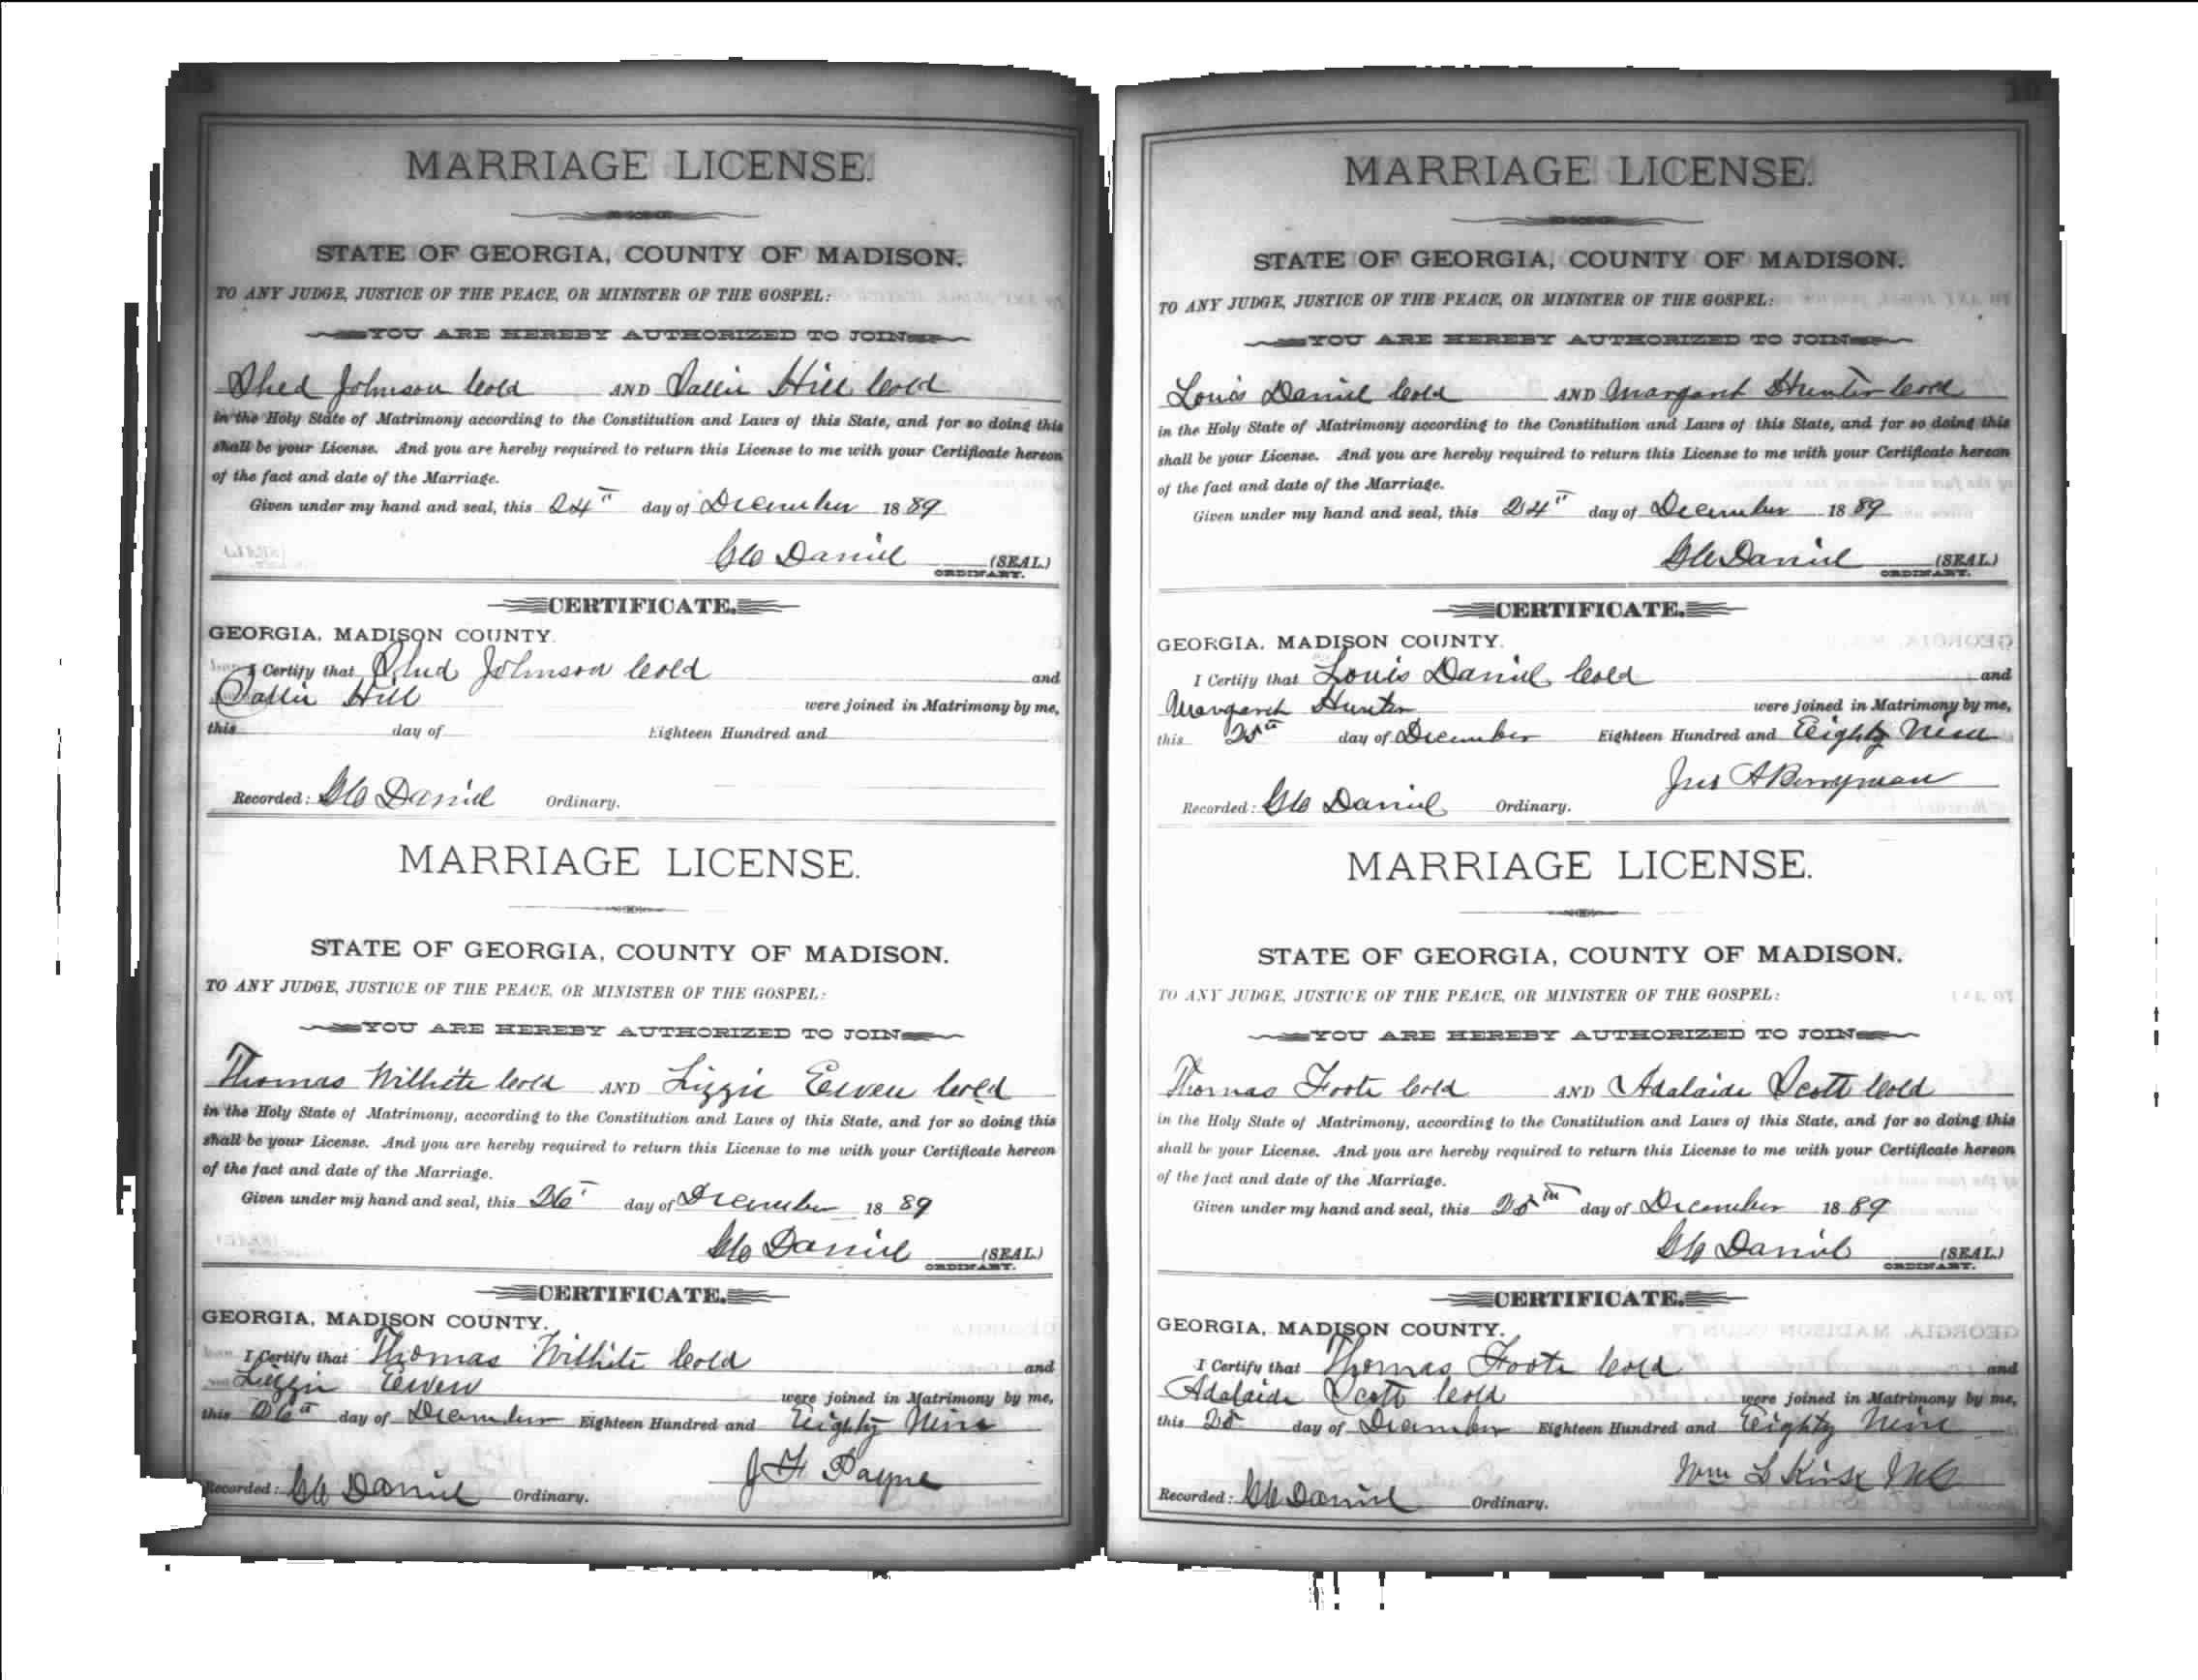 MARRIAGE LICENSE.
STATE OF GEORGIA, COUNTY OF MADISON.
TO ANY JUDGE, JUSTICE OF THE PEACE, OR MINISTER OF THE GOSPEL:
YOU ARE HEREBY AUTHORIZED TO JOIN
Shed Johnson Cold AND Sallie Hill Cold
in the Holy State of Matrimony according to the Constitution and Laws of this State, and for so doing this
shall be your License. And you are hereby required to return this License to me with your Certificate hereon
of the fact and date of the Marriage.
Given under my hand and seal, this 24th day of December 1889
Daniel (SEAL.)
ORDINARY.
CERTIFICATE.
GEORGIA, MADISON COUNTY.
I Certify that Shed Johnson Cold and
Sallie Hill were joined in Matrimony by me,
this day of Eighteen Hundred and
Recorded: Daniel Ordinary.
MARRIAGE LICENSE.
STATE OF GEORGIA, COUNTY OF MADISON.
TO ANY JUDGE, JUSTICE OF THE PEACE, OR MINISTER OF THE GOSPEL:
YOU ARE HEREBY AUTHORIZED TO JOIN
Thomas Wilhite Cold AND Lizzie Eewen Cold
in the Holy State of Matrimony, according to the Constitution and Laws of this State, and for so doing this
shall be your License. And you are hereby required to return this License to me with your Certificate hereon
of the fact and date of the Marriage.
Given under my hand and seal, this 26 day of December 1889
Daniel (SEAL.)
ORDINARY.
CERTIFICATE.
GEORGIA, MADISON COUNTY.
I Certify that Thomas Wilhite Cold and
Lizzie Eewen were joined in Matrimony by me,
this 26th day of December Eighteen Hundred and Eighty Nine
J H Payne
Recorded: Daniel Ordinary.
MARRIAGE LICENSE.
STATE OF GEORGIA, COUNTY OF MADISON.
TO ANY JUDGE, JUSTICE OF THE PEACE, OR MINISTER OF THE GOSPEL:
YOU ARE HEREBY AUTHORIZED TO JOIN
Louis Daniel Cold AND Margaret Hunter Cold
in the Holy State of Matrimony according to the Constitution and Laws of this State, and for so doing this
shall be your License. And you are hereby required to return this License to me with your Certificate hereon
of the fact and date of the Marriage.
Given under my hand and seal, this 24th day of December 1889
Daniel (SEAL.)
ORDINARY.
CERTIFICATE.
GEORGIA, MADISON COUNTY.
I Certify that Louis Daniel Cold and
Margaret Hunter were joined in Matrimony by me,
this 25th day of December Eighteen Hundred and Eighty Nine
Jas A Berryman
Recorded: Daniel Ordinary.
MARRIAGE LICENSE.
STATE OF GEORGIA, COUNTY OF MADISON.
TO ANY JUDGE, JUSTICE OF THE PEACE, OR MINISTER OF THE GOSPEL:
YOU ARE HEREBY AUTHORIZED TO JOIN
Thomas Foote Cold AND Adalaide Scott Cold
in the Holy State of Matrimony, according to the Constitution and Laws of this State, and for so doing this
shall be your License. And you are hereby required to return this License to me with your Certificate hereon
of the fact and date of the Marriage.
Given under my hand and seal, this 25th day of December 1889
Daniel (SEAL.)
ORDINARY.
CERTIFICATE.
GEORGIA, MADISON COUNTY.
I Certify that Thomas Foote Cold and
Adalaide Scott Cold were joined in Matrimony by me,
this 25 day of December Eighteen Hundred and Eighty Nine
Wm L
Recorded: Daniel Ordinary.